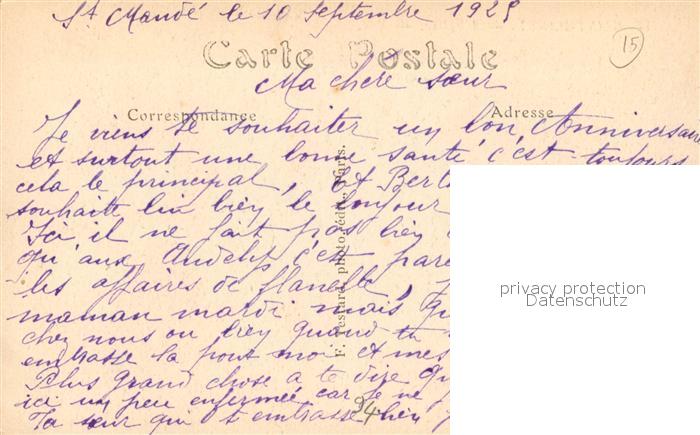 St Mandé le 10 Septembre 1925
15
Carte Postale
Ma chère sœur
Correspondance
Adresse
Je viens te souhaiter un bon Anniversaire
et surtout une bonne santé c'est toujours
cela le principal, Et
souhaite bien le bonjour
Ici il ne fait pas bien
qu'aux Andelys c'est
les affaires de flanelle,
maman mardi mais
chez nous ou bien quand tu
embrasse la pour moi et mes
Plus grand chose a te dire
ici un peu enfermée car je ne
Ta sœur qui t'embrasse bien
94
privacy protection
Datenschutz